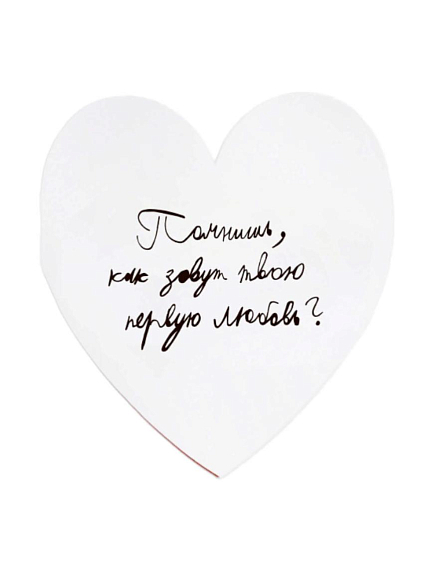 Помнишь,
как зовут твою
первую любовь?